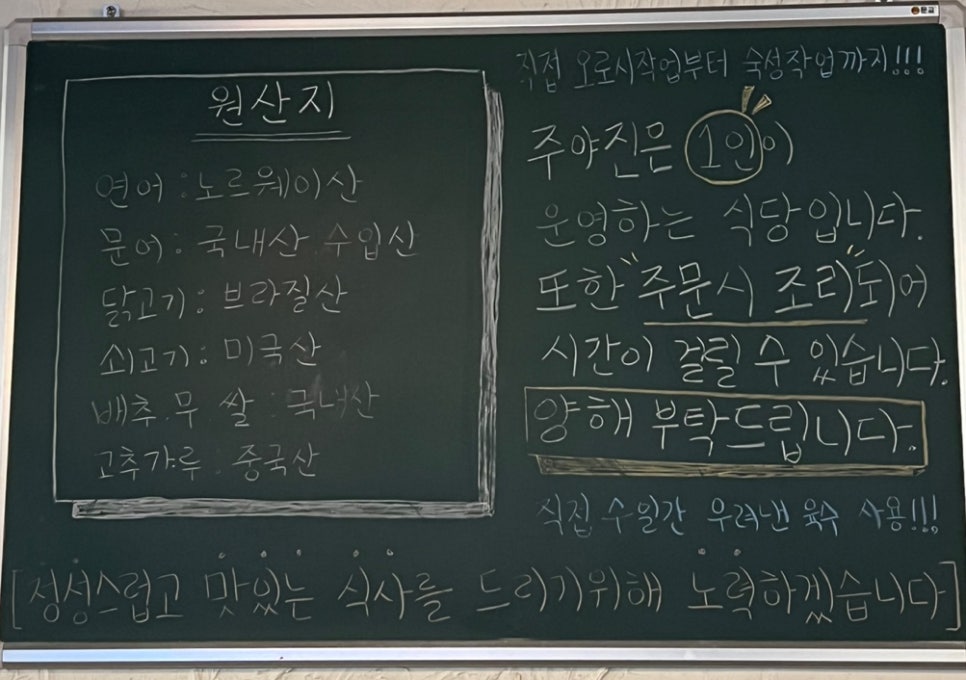 원산지
연어 : 노르웨이산
문어 : 국내산 수입산
닭고기 : 브라질산
쇠고기 : 미국산
배추.무 쌀 : 국내산
고추가루 : 중국산
직접 오로시작업부터 숙성작업까지!!!
주야진은 1인이
운영하는 식당입니다.
또한 "주문시 조리"되어
시간이 걸릴 수 있습니다.
양해 부탁드립니다.
직접 수일간 우려낸 육수 사용!!!
[정성스럽고 맛있는 식사를 드리기위해 노력하겠습니다]